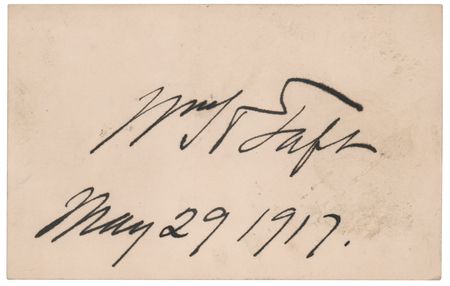 Wm H Taft
May 29 1917.